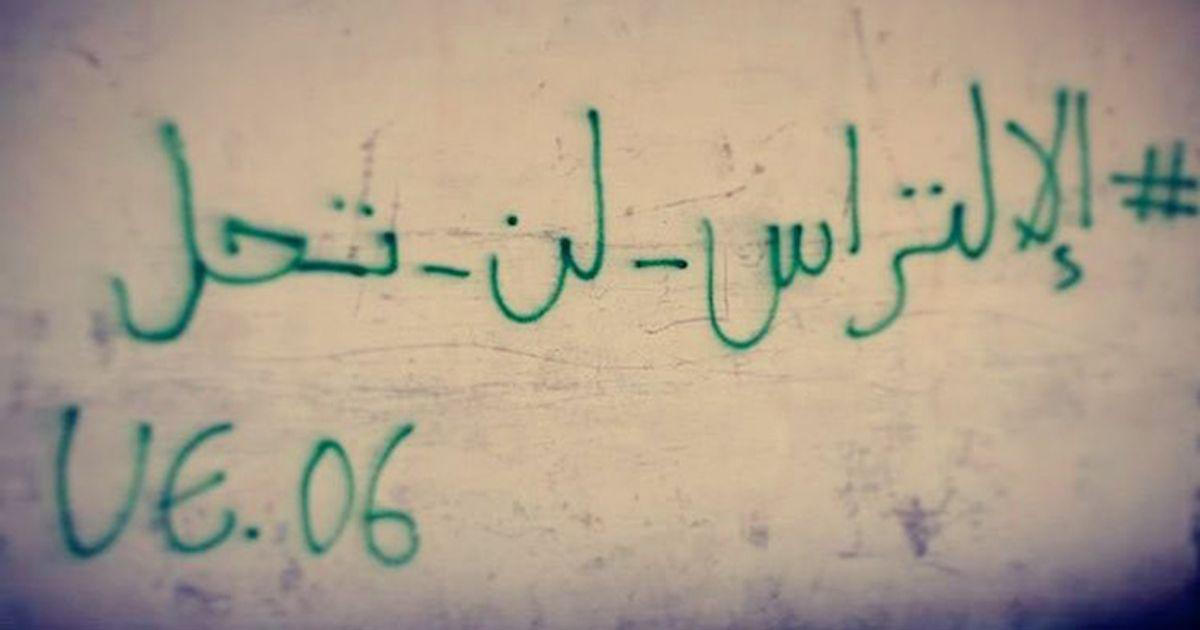 #الإلتراس-لن-تحل
UE.06